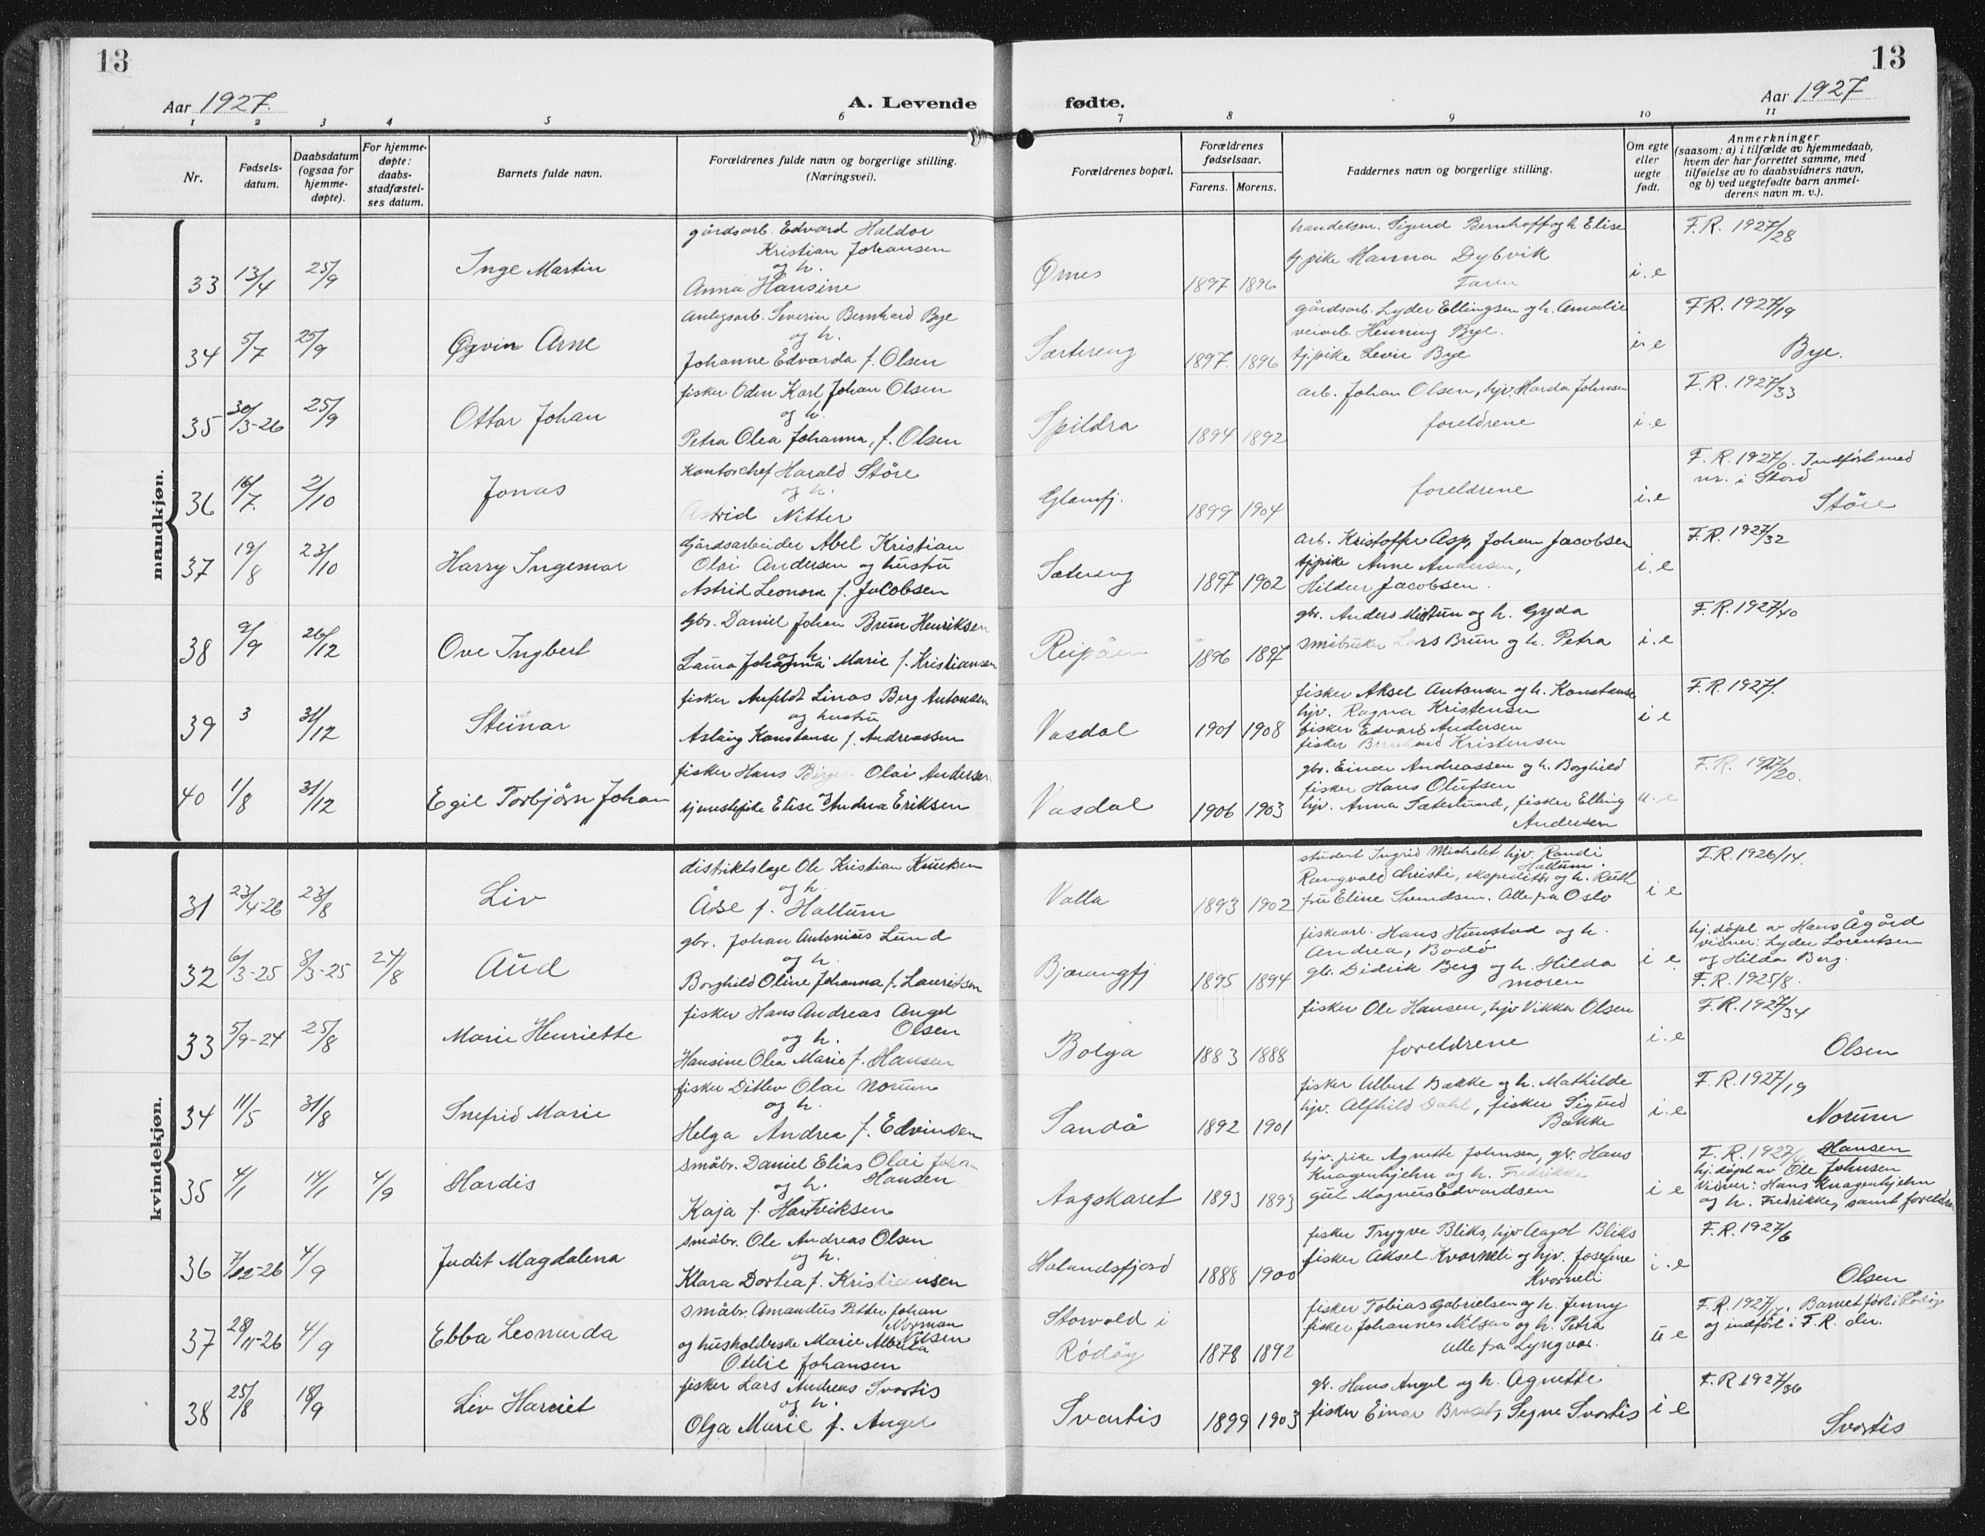 13
13
Aar 1927.
A. Levende
fødte.
Aar 1927
1 2 3 4 5 6 7 8 9 10 11
Nr.
Fødsels-
datum.
Daabsdatum
(ogsaa for
hjemme-
døpte).
For hjemme-
døpte:
daabs-
stadfæstel-
ses datum.
Barnets fulde navn.
Forældrenes fulde navn og borgerlige stilling.
(Næringsvei).
Forældrenes bopæl.
Forældrenes
fødselsaar.
Farens. Morens.
Faddernes navn og borgerlige stilling.
Om egte
eller
uegte
født.
Anmerkninger
(saasom: a) i tilfælde av hjemmedaab,
hvem der har forrettet samme, med
tilføielse av to daabsvidners navn,
og b) ved uegtefødte barn anmel-
derens navn m. v.).
mandkjøn.
33 13/4 25/9 Inge Martin
gårdsarb. Edvard Haldor
Kristian Johansen
og h.
Anna Hansine
Ørnes 1897 1896
handelsm. Sigurd Bernhoff og h. Elise
tj pike Hanna Dybvik
Faren
i. e
F.R. 1927/28
34 5/7 25/9 Øyvin Arne
Anlegsarb. Severin Bernhard Bye
og h.
Johanne Edvarda f. Olsen
Sætereng 1897. 1896
gårdsarb. Lyder Ellingsen og h. Amalie
veiarb. Henning Bye.
tjpike Levie Bye
i. e
F.R. 1927/19
Bye.
35 30/3-26 25/9 Ottar Johan
fisker Odin Karl Johan Olsen
og h.
Petra Olea Johanna, f. Olsen
Spildra 1894 1892
arb. Johan Olsen, hjv. Harda Johnsen
foreldrene
i. e
F.R. 1927/33
36 16/7. 2/10 Jonas
Kontorchef Harald Støre
og h.
Astrid Nitter
Glomfj. 1899 1904
foreldrene
i. e
F.R. 1927/0. Indført med
nr. i Stord
Støre
37 19/8 23/10 Harry Ingemar
Gårdsarbeider Abel Kristian
Olai Andersen og hustru
Astrid Leonora f. Jacobsen
Sætereng 1897 1902
arb. Kristoffer Asp, Johan Jacobsen
tjpike Anne Andersen,
Hildur Jacobsen.
i. e
F.R. 1927/32
38 9/9 26/12 Ove Ingbert
Gbr. Daniel Johan Brun Henriksen
og h.
Laura Johanna Marie f. Kristiansen
Reipåen 1896 1897
gbr. Anders Mistun og h. Gyda
småbruker Lars Brun og h. Petra
i. e
F.R. 1927/40
39 3 31/12 Steinar
fisker Anfeldt Linas Berg Antonsen
og hustru
Aslaug Konstanse f. Andreassen
Vasdal 1901 1908
fisker Aksel Antonsen og h. Konstanse
hjv. Ragna Kristensen
fisker Edvard Andersen
fisker Bernhard Kristensen
i e
F.R. 1927/.
40 1/8 31/12 Egil Torbjørn Johan
fisker Hans Birger Olai Andersen
og
tjenestepike Elise Andrea Eriksen
Vasdal 1906 1903
gbr. Einar Andreassen og h. Borghild
fisker Hans Olufsen
hjv. Anna Sæterlund, fisker Elling
Andersen
u. e
F.R. 1927/20.
kvindekjøn.
31 23/4-26 23/8 Liv
distriktslæge Ole Kristian Knutsen
og h.
Åse f. Hallum
Valla 1893 1902
student Ingrid Michelet hjv. Randi
Hallum.
Rangvald Christi, ekspeditør og h. Ruth
fru Eline Svendsen. Alle fra Oslo
i e
F.R. 1926/14.
32 6/3-25 8/3-25 24/8 Aud
gbr. Johan Antonius Lund
og h.
Borghild Oline Johanna f. Lauritsen
Bjærangfj 1895 1894
fiskearb. Hans Hunstad og h.
Andrea, Bodø
gb. Didrik Berg og h. Hilda
moren
i e
hj. døpt av Hans Ågård
vidner: Lyder Lorentsen
og Hilda Berg.
F.R. 1925/8.
33 5/9-24 25/8 Marie Henriette
fisker Hans Andreas Angel
Olsen
og h.
Hansine Olea Marie f. Hansen
Bolga 1883 1888
fisker Ole Hansen, hjv Vikka Olsen
foreldrene
i. e
F.R. 1927/34
Olsen
34 11/5 31/8 Snefrid Marie
fisker Ditlev Olai Norum
og h.
Helga Andrea f. Edvindsen
Sandå 1892 1901
fisker Albert Bakke og h. Mathilde
hjv. Alfhild Dahl, fisker Sigurd
Bakke
i. e
F.R. 1927/19
Norum
35 4/1 14/1 4/9 Hardis
småbr. Daniel Elias Olai Johan
Hansen
og h.
Kaja f. Hartviksen
Aagskaret 1893 1893
hjv. pike Agnette Johnsen, gb. Hans
Knagenhjelm og h. Fredrikke
gut Magnus Edvardsen
i e
F.R. 1927/ Hansen
hj. døpt av Ole Johnsen
Vidner: Hans Knagenhjelm
og h. Fredrikke, samt foreldre
36 7/12-26 4/9 Judit Magdalena
småbr. Ole Andreas Olsen
og h.
Klara Dortea f. Kristiansen
Holandsfjord 1888 1900
fisker Trygve Bliks, hjv Aagot Bliks
fisker Aksel Kvarneli og hjv. Josefine
Kvarneli
i. e
F.R. 1927/6
Olsen
37 28/11-26 4/9 Ebba Leonarda
småbr. Amandus Petter Johan
Norman
Nilsen
og husholderske Marie Alberta
Otelie Johansen
Storvold i
Rødøy 1878 1892
fisker Tobias Gabrielsen og h. Jenny
fisker Johannes Nilsen og h. Petra
alle fra Lyngvær.
u e
F.R. 1927/7. Barnet født i Rødøy
og indført i F.R. der.
38 25/8 18/9 Liv Harriet
fisker Lars Andreas Svartis
og h.
Olga Marie f. Angel
Svartis 1899 1903
gb. Hans Angel og h. Agnette
fisker Einar Braset, Segne Svartis
i e
F.R. 1927/36
Svartis